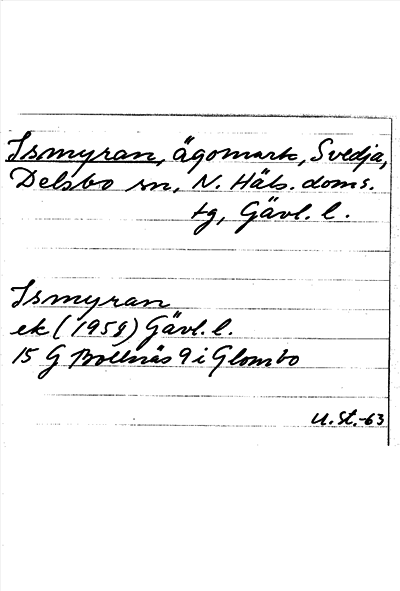 Ismyran, ägomark, Svedja,
Delsbo sn, N. Häls. doms.
tg, Gävl. l.
Ismyran
ek (1958) Gävl. l.
15 G Bollnäs 9 i Glombo
U. St. -63